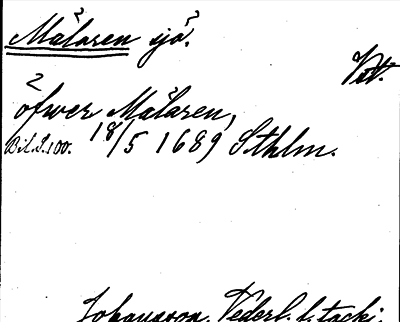 Mälaren sjö.
Vtt.
öfwer Mälaren,
Bil. I. 100. 18/5 1689 Sthlm.
Johansson, Vederl. f. tack: